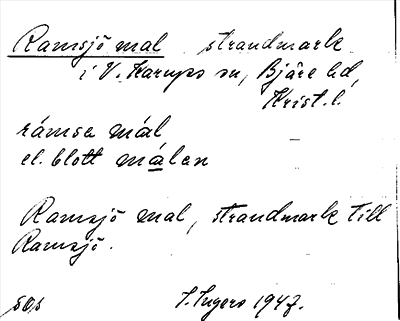 Ramsjö mal strandmark
i V. Karups sn, Bjäre hd,
Krist. l.
rámsa mál
el. blott málən
Ramsjö mal, strandmark till
Ramsjö.
sos S. Ingers 1947.